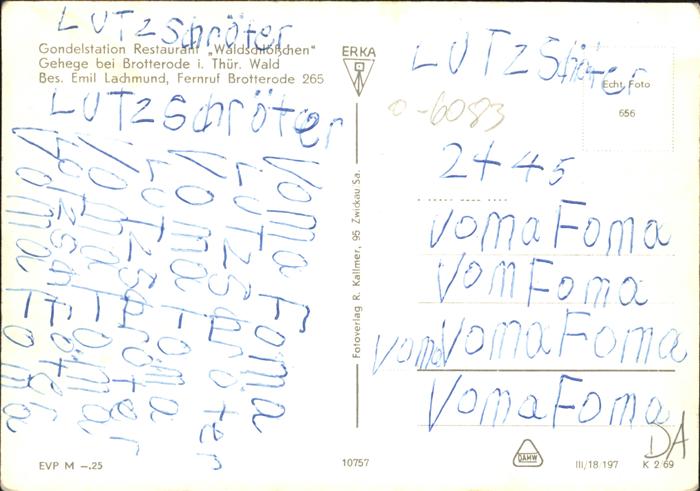 LUTz Schröter
Gondelstation Restaurant „Waldschlößchen“
Gehege bei Brotterode i. Thür. Wald
Bes. Emil Lachmund, Fernruf Brotterode 265
LUTz Schröter
Voma Foma
LUTz Schröter
Voma Foma
LUTz Schröter
Voma Foma
Voma Foma
EVP M –.25
ERKA
Fotoverlag R. Kallmer, 95 Zwickau Sa.
10757
LUTz Schröter
Echt Foto
656
0-6083
2445
Voma Foma
Vom Foma
Voma Voma Foma
Voma Foma
DA
DAMW
III/18 197 K 2 69